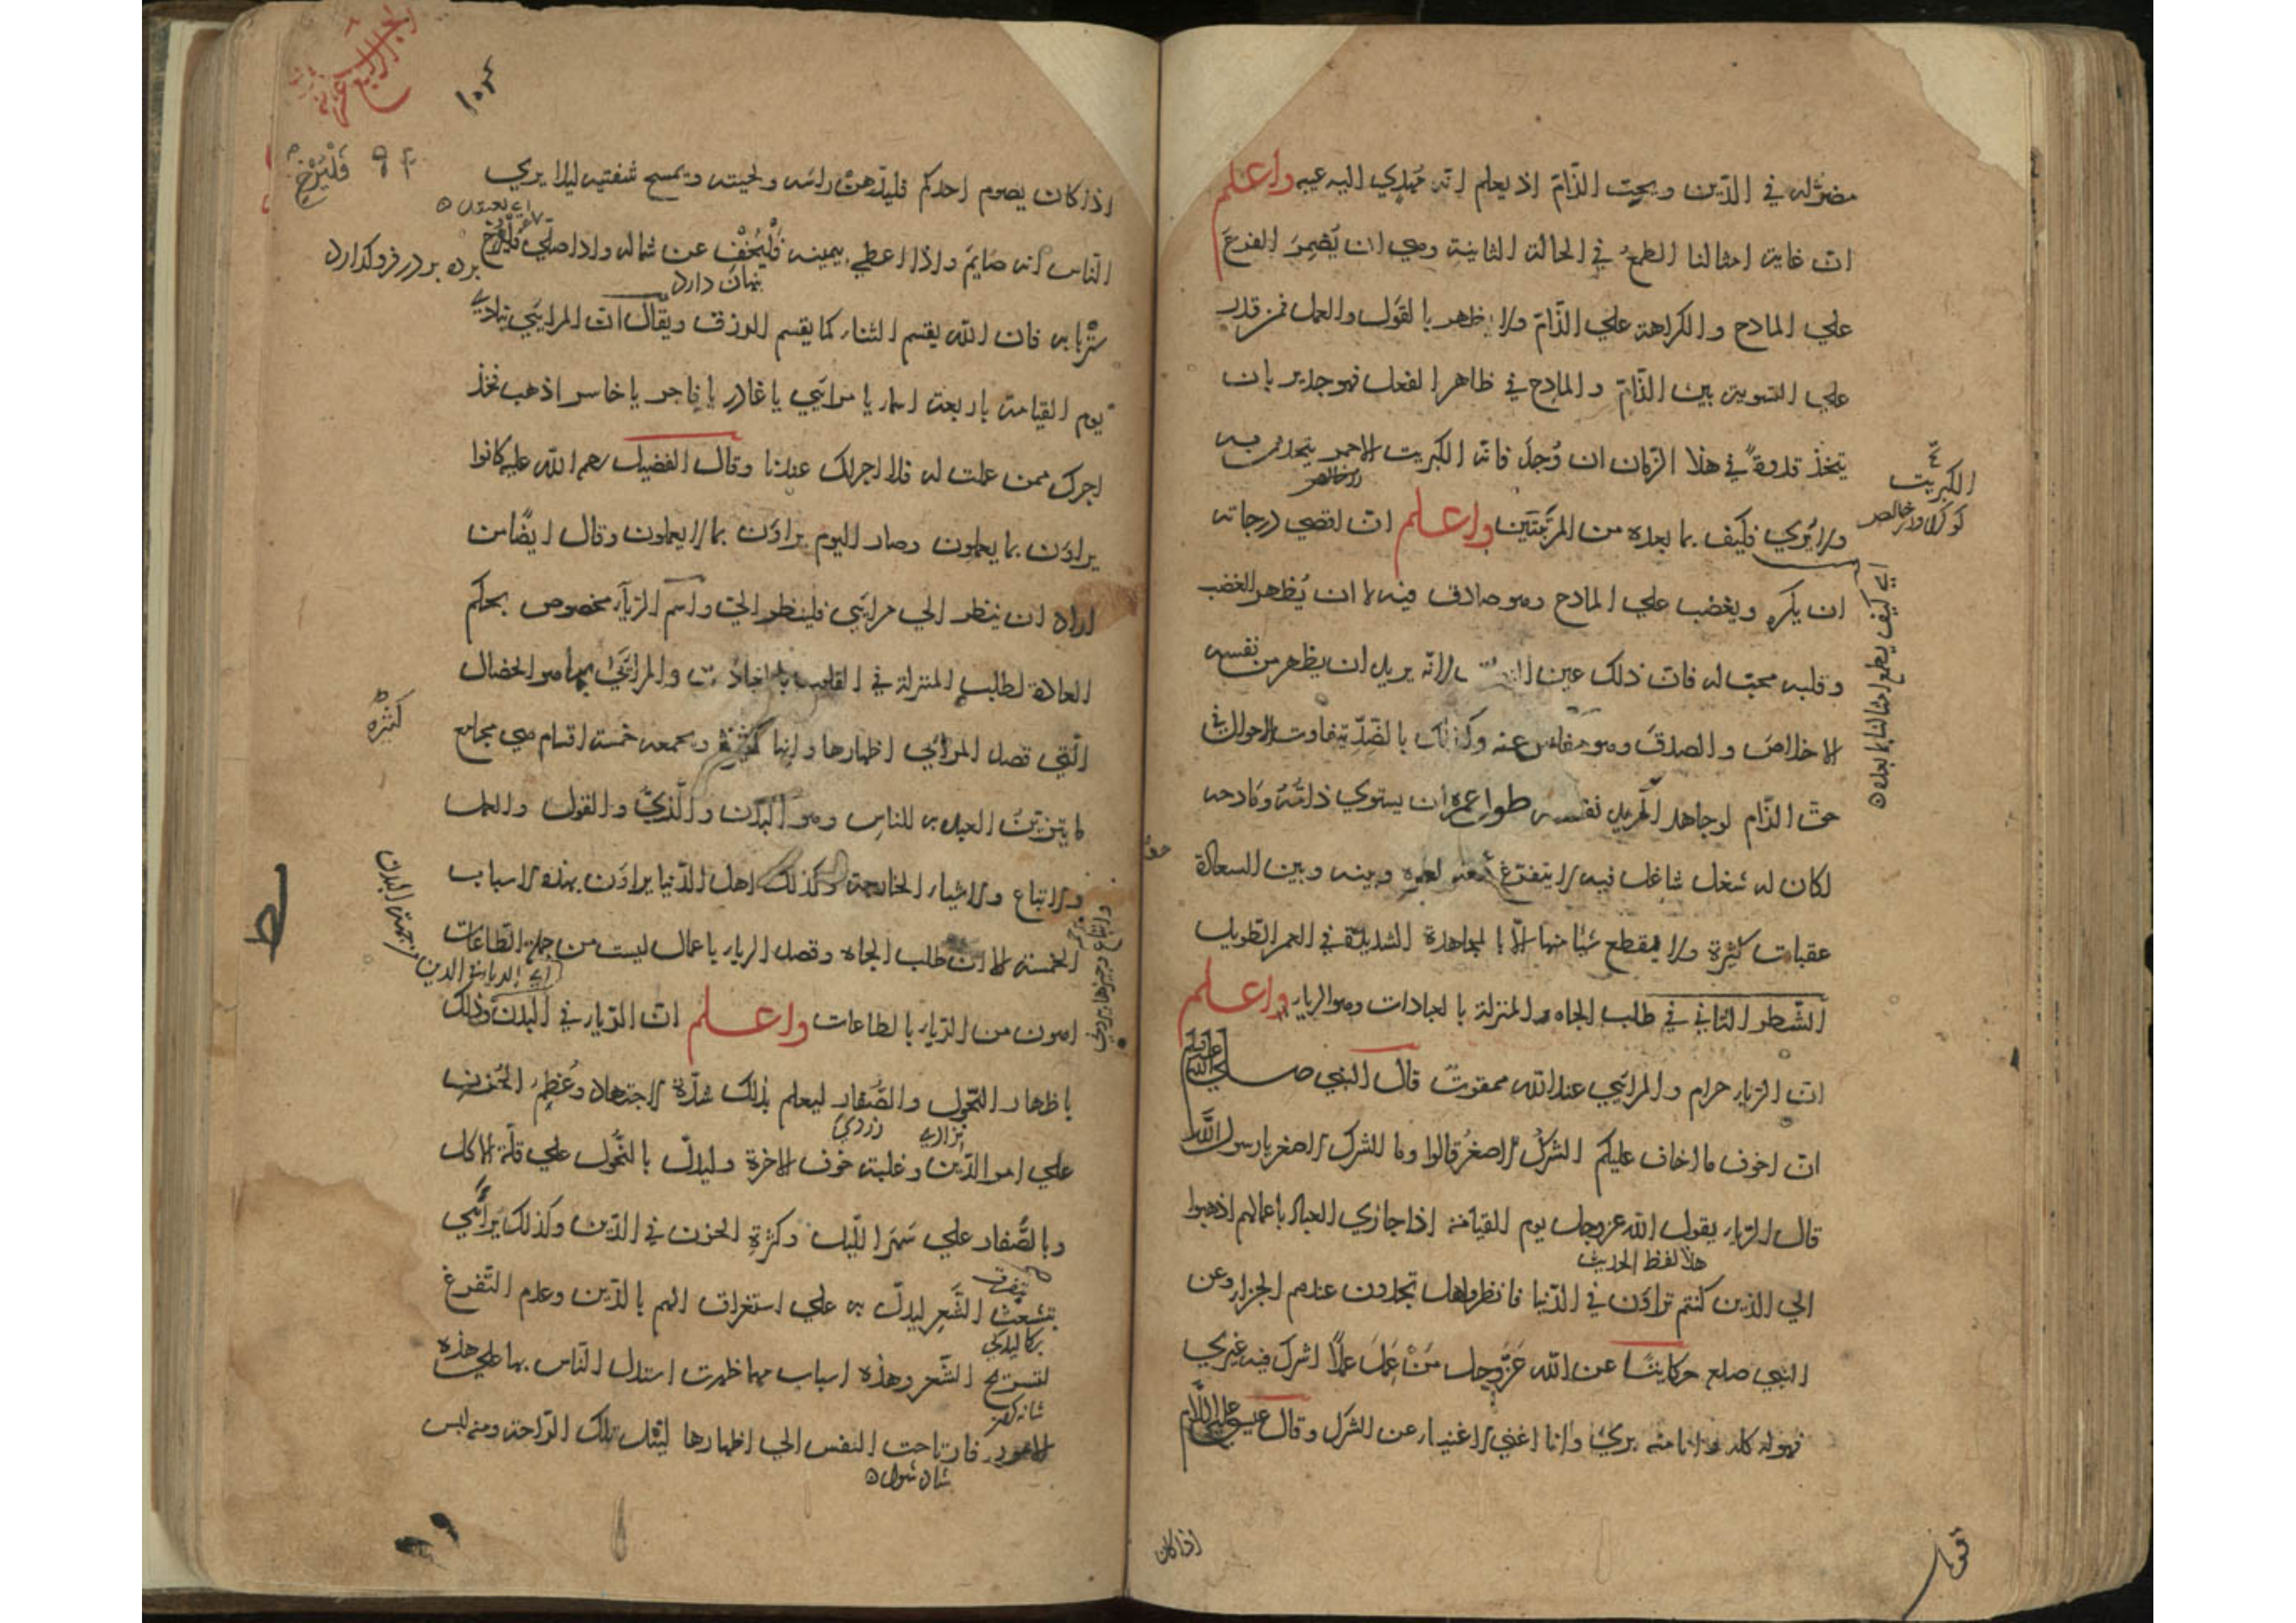 مضرّ له في الدّين ويحبّ الذّامّ اذ يعلم انّه مُهدي اليه عيبه واعلم
انّ غاية امثالنا الطمع في الحالة الثانية وهي ان يُضمِرَ الفرحَ
علي المادح والكراهة علي الذّامّ ولا يظهر بالقول والعمل فمن قدر
علي التسوية بين الذّامّ والمادح في ظاهر الفعل فهو جدير بان
يتخذ قدوةً في هذا الزمان ان وُجدَ فانّه الكبريت الاحمر يتحدّث به
ولا يُري فكيف بما بعده من المرتبتين واعلم انّ اقصي درجاته
ان يكره ويغضب علي المادح وهو صادق فيه لا ان يُظهر الغضب
وقلبه محبّ له فانّ ذلك عين لانّه يريد ان يظهر من نفسه
الاخلاصَ والصدقَ وهو مفلس عنه وكذلك بالضّدّ يتفاوت الاحوال في
حقّ الذّام لو جاهد المريد نفسه طول عمره ان يستوي ذامّه ومادحه
لكان له شغل شاغل فيه لا يتفرّغ معه لغيره وبينه وبين السعادة
عقبات كثيرة ولا يقطع شيًا منها الّا بالمجاهدة الشديدة في العمر الطويل
الشّطر الثاني في طلب الجاه والمنزلة بالعبادات وهو الرياء واعلم
انّ الرياء حرام والمرائي عند الله ممقوت قال النبي صلي الله عليه وسلم
انّ اخوف ما اخاف عليكم الشرك الاصغرُ قالوا وما الشرك الاصغر يا رسول الله
قال الرياء يقول الله عزوجل يوم القيامة اذا جازي العباد باعمالهم اذهبوا
هذا لفظ الحديث
الي الذين كنتم تراؤن في الدّنيا فانظروا هل تجدون عندهم الجزاء وعن
النبي صلعم حكايةً عن الله عَزّوجل مَنْ عَمِلَ عملًا اشرك فيه غيري
فهو له كله وانا منه بريٌ وانا اغني الاغنياء عن الشرك وقال عيسي عليه السلام
الكبريت
اي كيف يطمع امثالنا بما بعده
اذا كان
اذا كان يصوم احدكم فليدّهن راسه ولحيته ويمسح شفتيه ليلا يري
الناس انه صايم واذا اعطي بيمينه فَلْيُخْفِ عن شماله واذا صلي فليُرْخِ
پنهان دارد
سترَ بابه فان الله يقسم الثناء كما يقسم الرزق ويقال انّ المرائي ينادي
يوم القيامة باربعة اسماء يا مرائي يا غادر يا فاجر يا خاسر اذهب فخذ
اجرك ممن عملت له فلا اجر لك عندنا وقال الفضيل رحم الله عليه كانوا
يراؤن بما يعملون وصار اليوم يراؤن بما لا يعملون وقال ايضًا من
اراد ان ينظر الي مرائي فلينظر اليّ واسم الرياء مخصوص بحكم
العادة لطلب المنزلة في القلوب بالعبادات والمرائي به هو الخصال
الّتي قصد المرائي اظهارها وانها كثيرة ويجمعه خمسة اقسام هي مجامع
ما يتزيّن العبد به للناس وهو البدن والزيّ والقول والعمل
والاتباع والاشياء الخارجة وكذلك اهل الدّنيا يراؤن بهذه الاسباب
الخمسة الا ان طلب الجاه وقصد الرياء باعمال ليست من جملة الطاعات
اهون من الرياء بالطاعات واعلم انّ الرياء في البدن وذلك
باظهار النّحول والصُّفار ليعلم بذلك شدّة الاجتهاد وعُظم الحُزن
زردي
علي امر الدّين وغلبة خوف الاخرة وليدلّ بالنّحول علي قلّة الاكل
وبالصُّفار علي سَهَر الليل وكثرة الحزن في الدّين وكذلك يرائي
بتشعّث الشَّعر ليدلّ به علي استغراق الهم بالدّين وعدم التّفرغ
لتسريح الشّعر وهذه اسباب مهما ظهرت استدل النّاس بها علي هذه
الامور فارتاحت النفس الي اظهارها لنيل تلك الرّاحة ومنه لبس
شاد شود
فَلْيُرْخِ
پرده بر در فروگذارد
كثيرة
اي الرياء في الدين